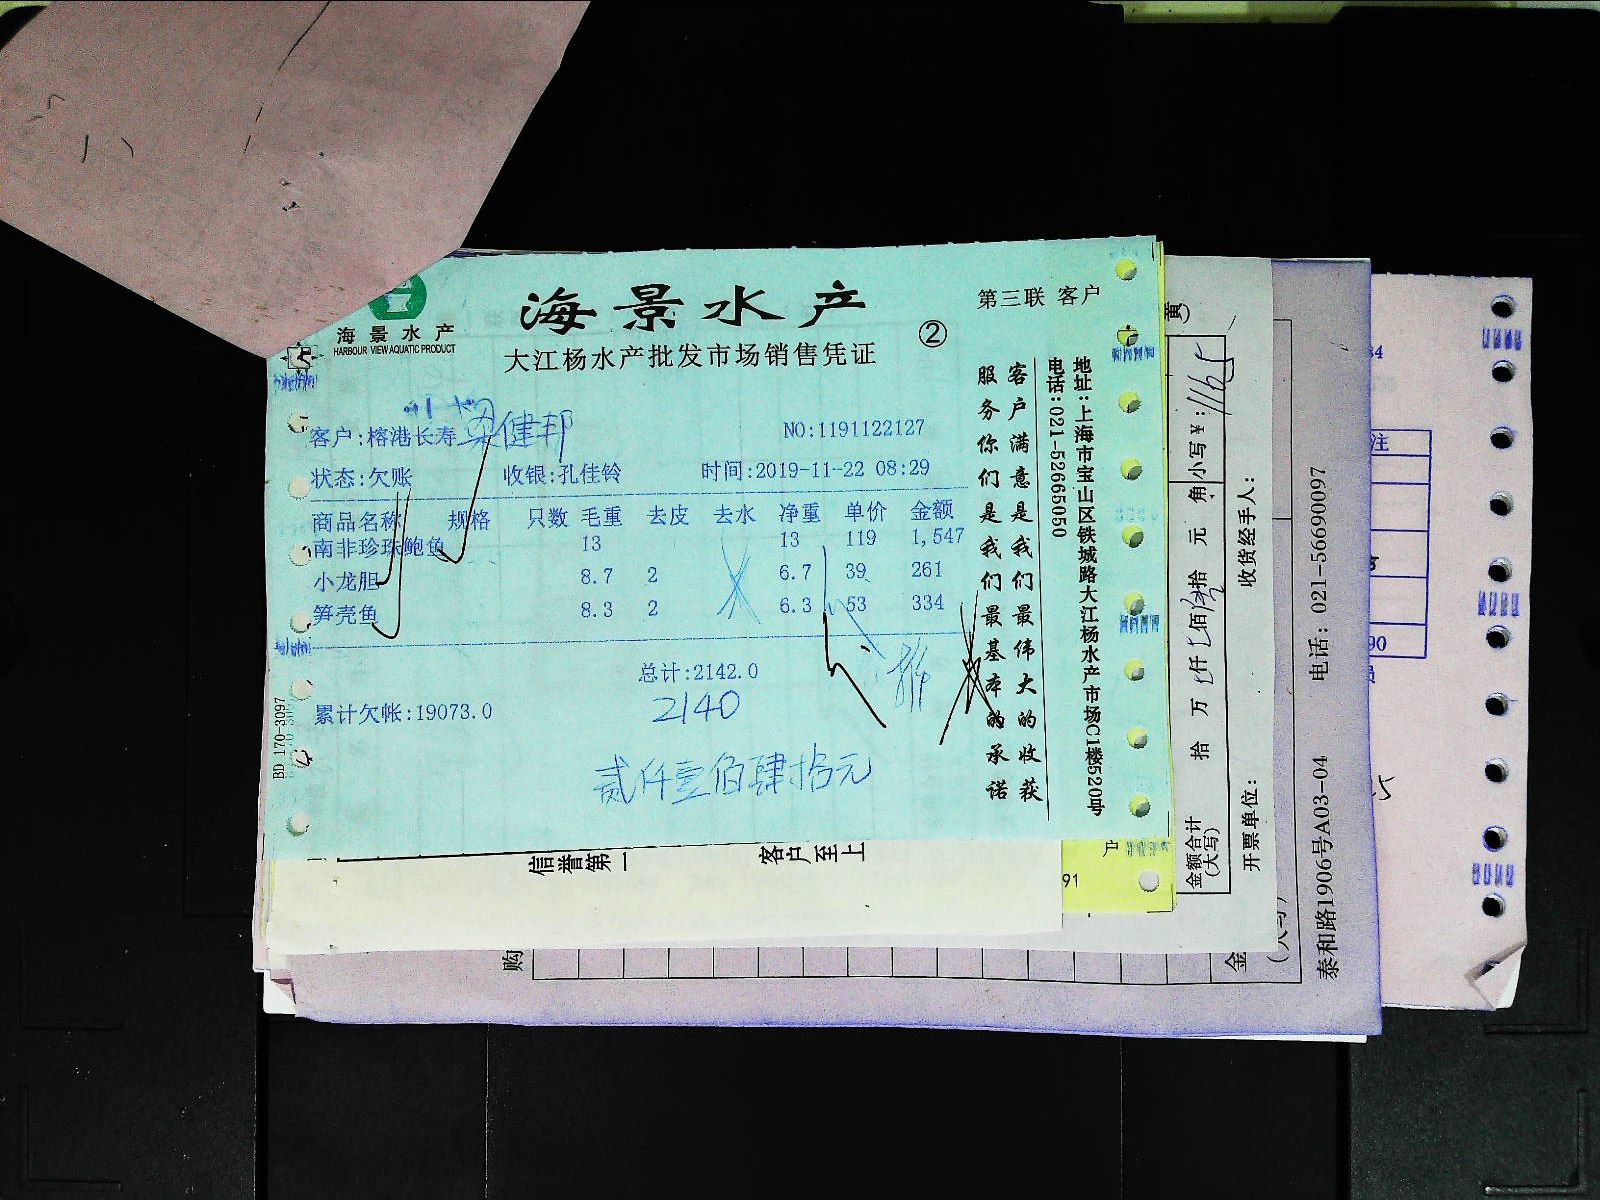 海景水产
HARBOUR VIEW AQUATIC PRODUCT
海景水产
大江杨水产批发市场销售凭证
②
第三联 客户
客户:榕港长寿 梁健邦
NO:1191122127
状态:欠账 收银:孔佳铃 时间:2019-11-22 08:29
商品名称 规格 只数 毛重 去皮 去水 净重 单价 金额
南非珍珠鲍鱼 13 13 119 1,547
小龙胆 8.7 2 6.7 39 261
笋壳鱼 8.3 2 6.3 53 334
总计:2142.0
2140
累计欠帐:19073.0
贰仟壹佰肆拾元
BD 170-3097
客户满意是我们最伟大的收获
服务你们是我们最基本的承诺
地址:上海市宝山区铁城路大江杨水产市场C1楼520号
电话:021-52665050
信誉第一 客户至上
户
91
金额合计
(大写)
拾 万 仟 佰 拾 元 角
小写¥: 1165
开票单位:
收货经手人:
购
金
泰和路1906号A03-04 电话: 021-56690097
84
注
90